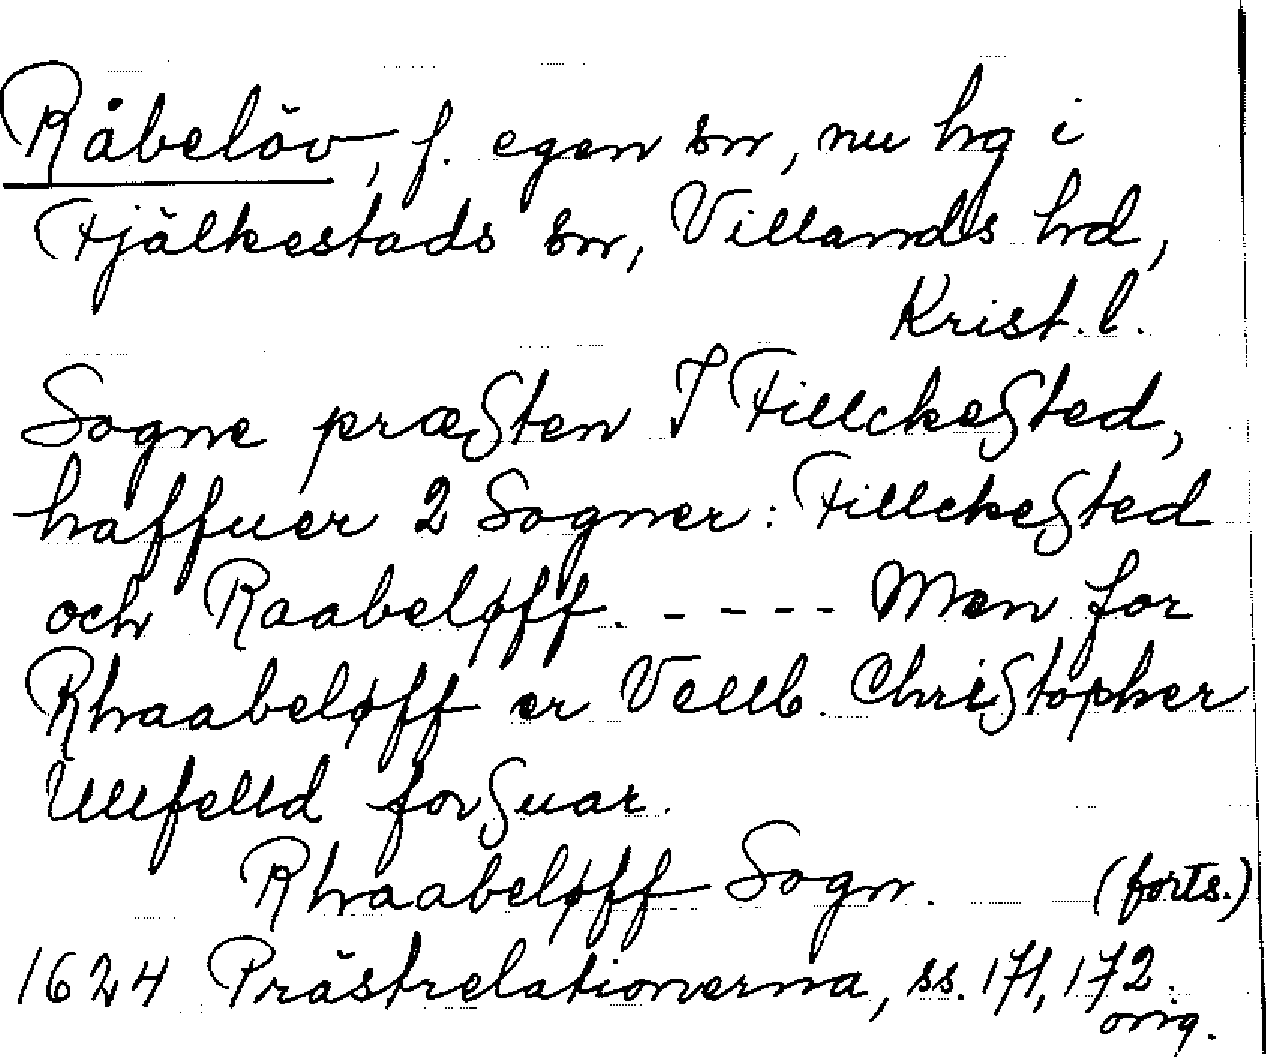 Råbelöv, f. egen sn, nu hg i
Fjälkestads sn, Villands hd,
Krist. l.
Sogne præsten I Fillckested,
haffuer 2 Sogner: Fillckested
och Raabeløff. - - - - Men for
Rhaabeløff er Vellb. Christopher
Ullfelld forsuar.
Rhaabeløff Sogn. (forts.)
1624 Prästrelationerna, ss. 171, 172.
orig.